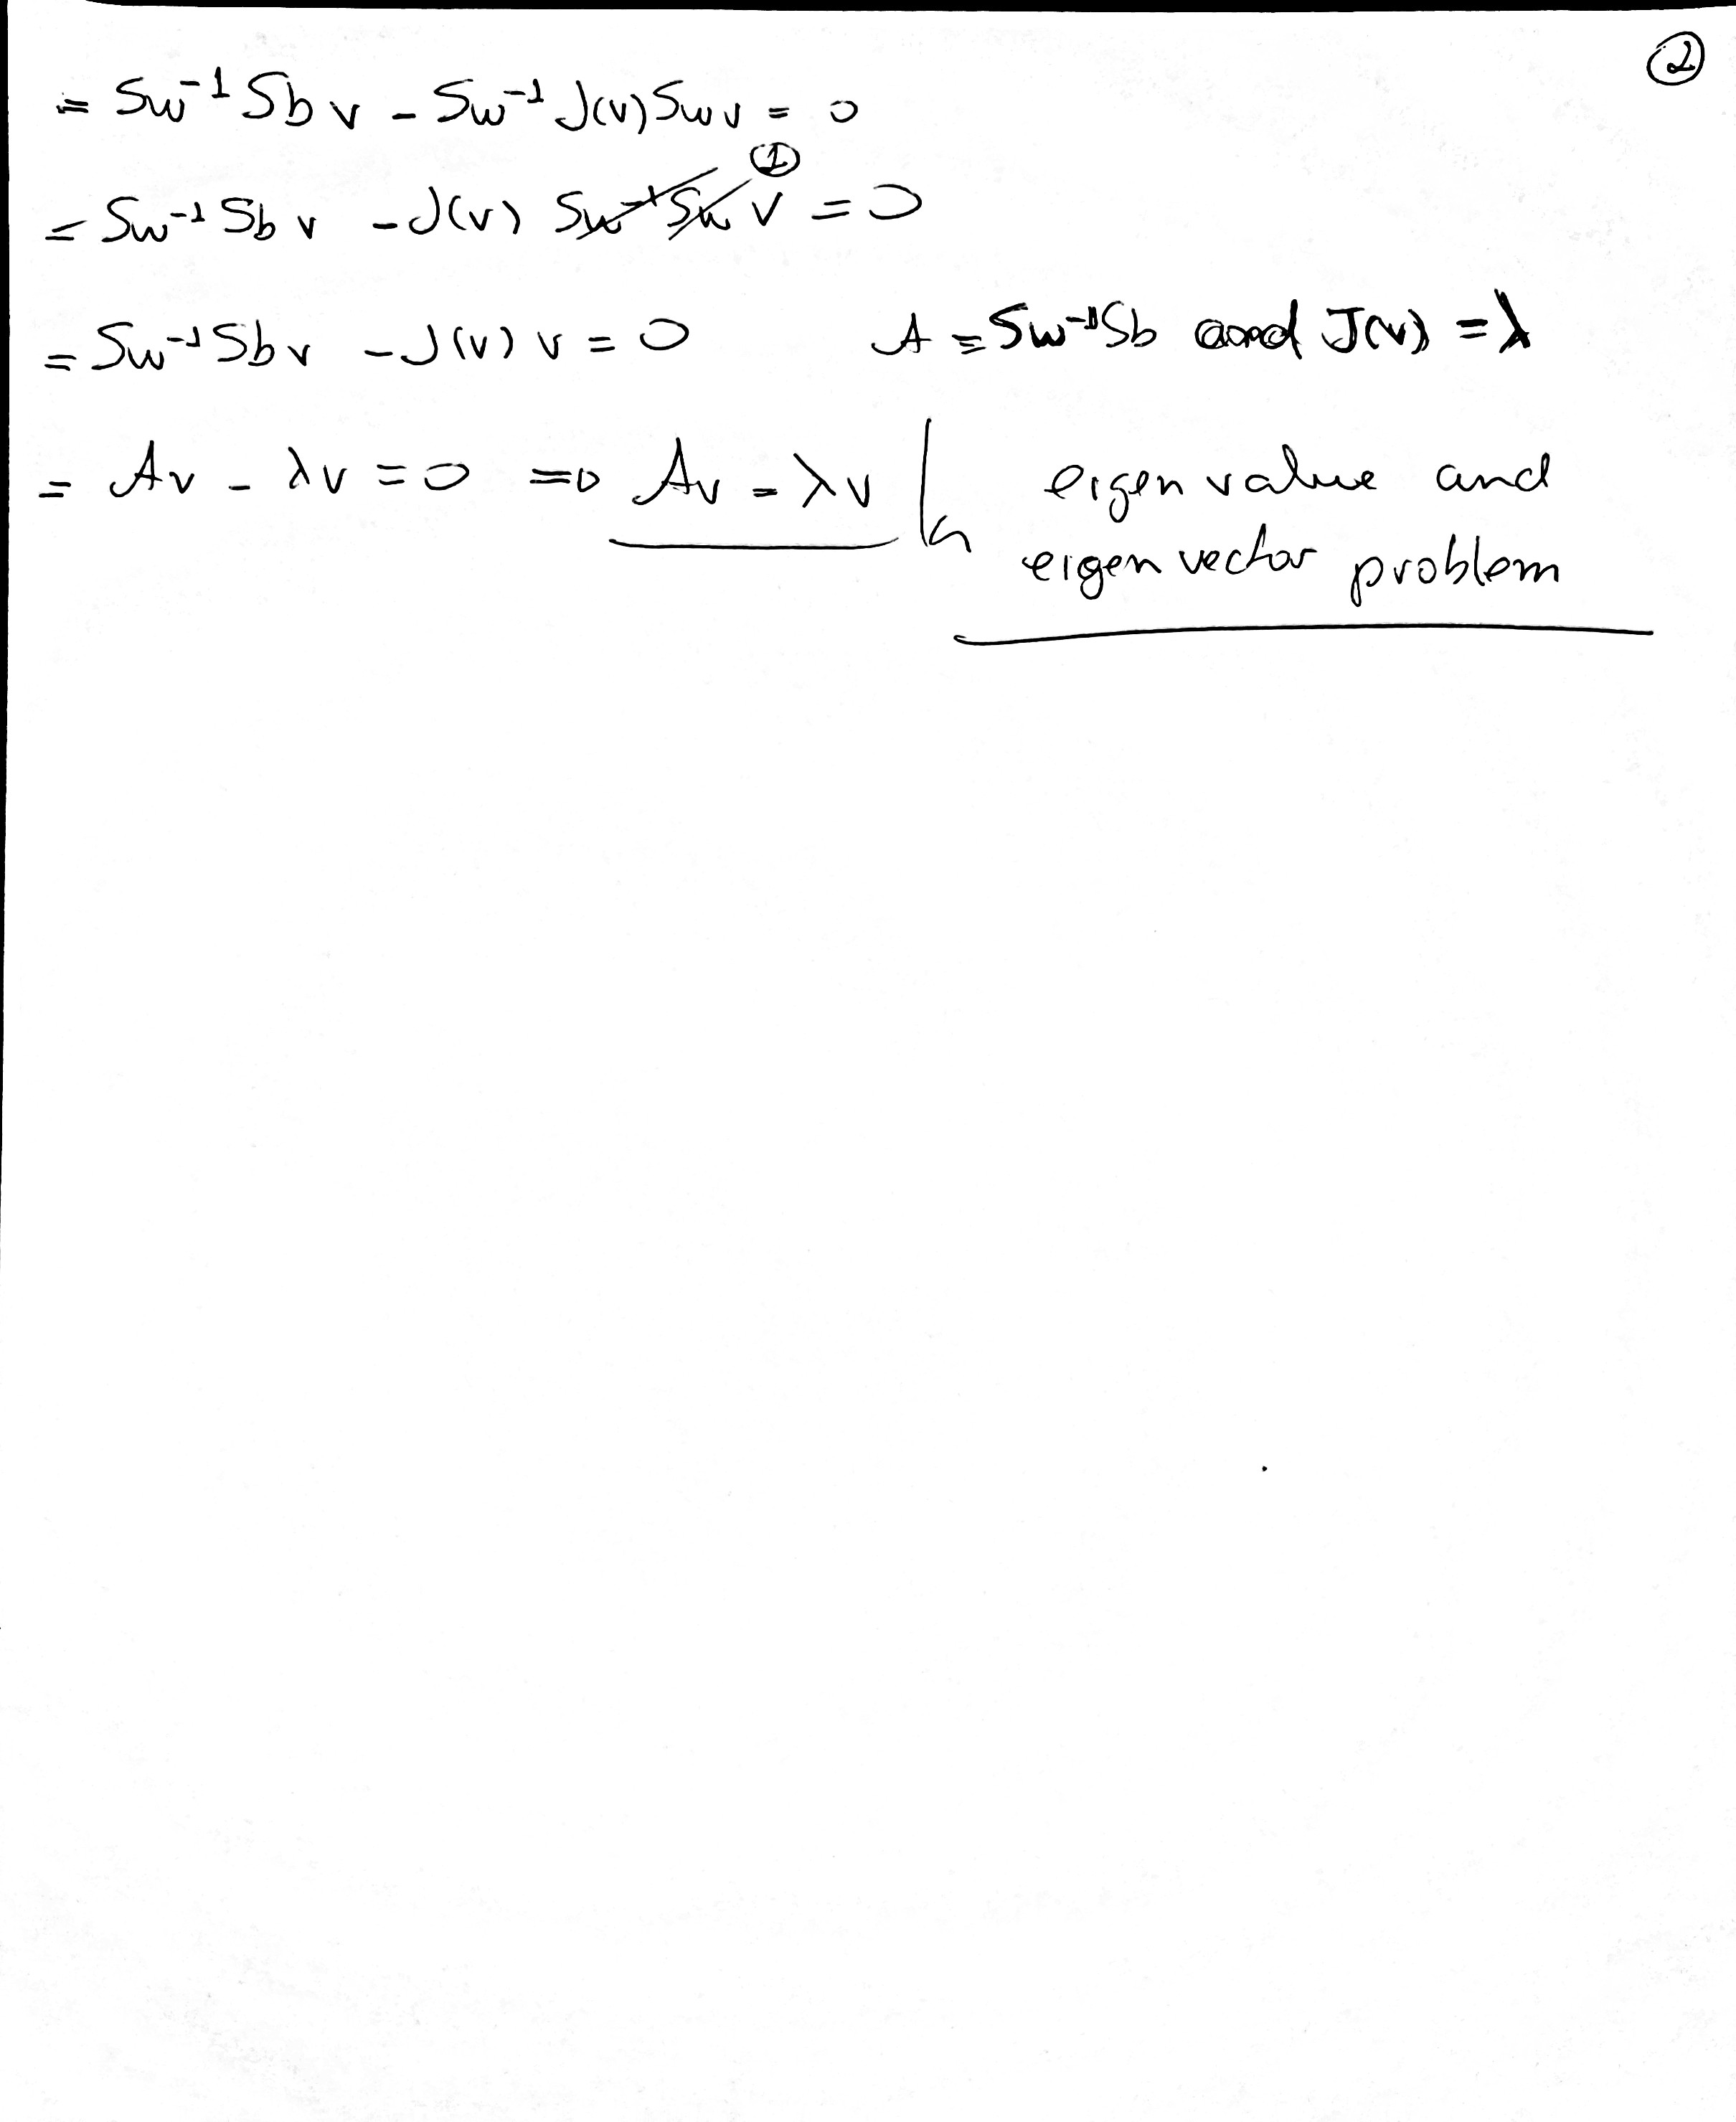 ②
= Sw⁻¹ Sb v - Sw⁻¹ J(v) Sw v = 0
①
= Sw⁻¹ Sb v - J(v) Sw⁻¹ Sw v = 0
= Sw⁻¹ Sb v - J(v) v = 0 A = Sw⁻¹Sb and J(v) = λ
= Av - λv = 0 => Av = λv eigen value and
eigen vector problem